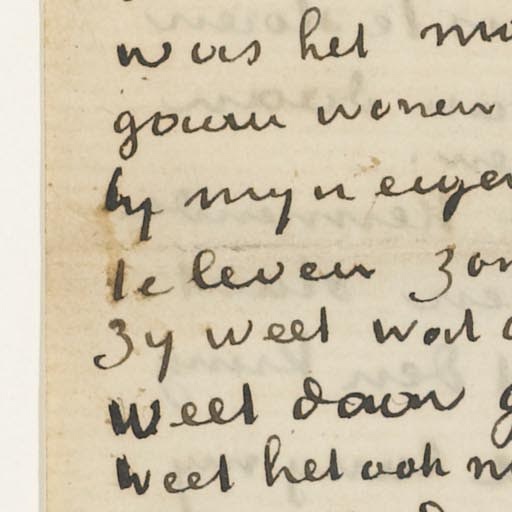 was het
gauw wonen
by myn eigen
te leven zon
zy weet wat
weet daar
weet het ook